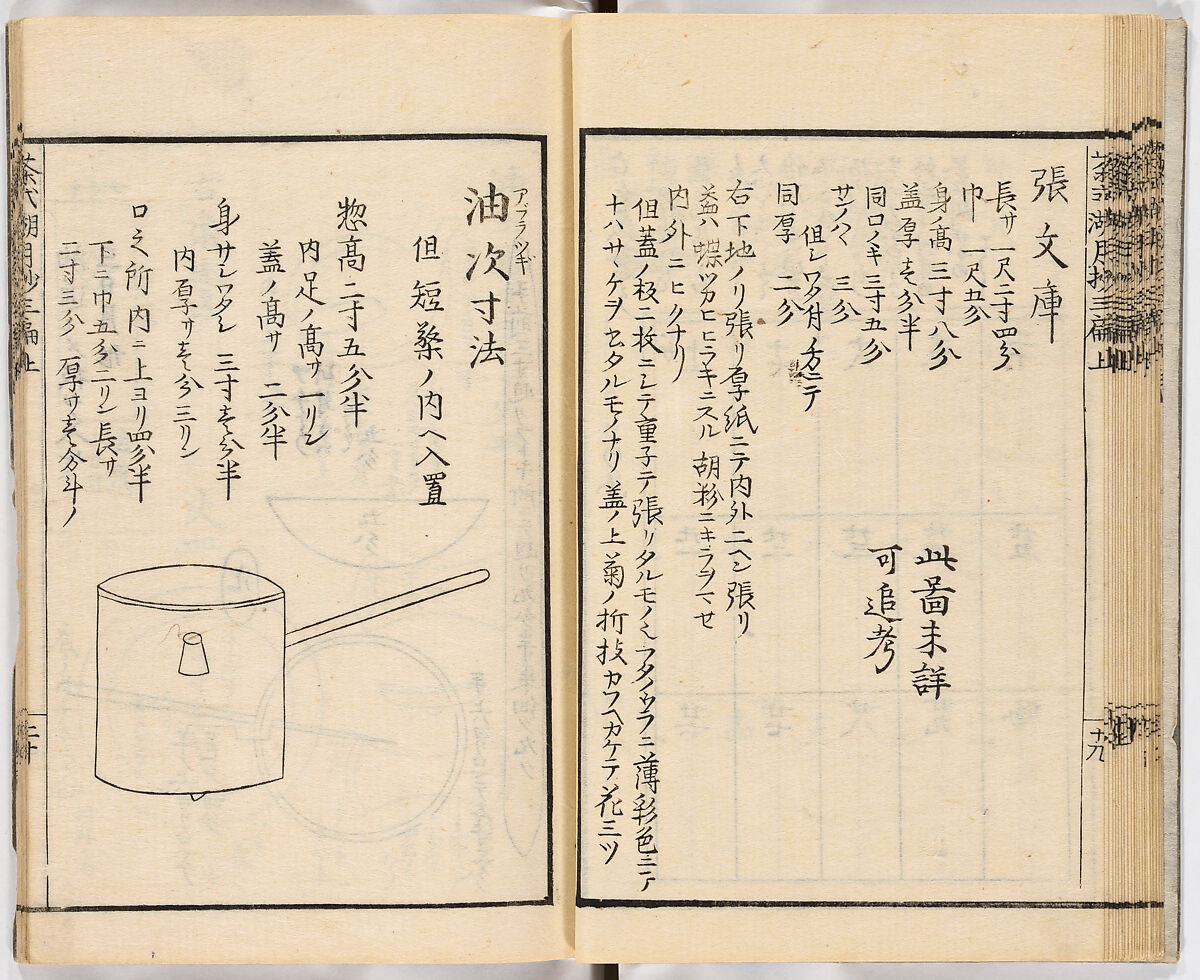 茶式湖月抄三編上
十九
張文庫
長サ 一尺二寸四分
巾 一尺五分
身ノ高 三寸八分
蓋厚 壱分半
同口ノキ 三寸五分
サンハヾ 三分
但シワタ付ノ
ニテ
同厚 二分
此啚未詳
可追考
右下地ノリ張リ厚紙ニテ内外二ヘン張リ
蓋ハ蝶ツカヒヒラキニスル胡粉ニキラヲマセ
内外ニヒクナリ
但蓋ノ板二枚ニシテ重子テ張リタルモノ
フタノウラニ薄彩色ニテ
十八サヽケヲ
タルモノナリ蓋ノ上菊ノ折枝カフヘカケテ花三ツ
油次寸法
アブラツギ
但短檠ノ内ヘ入置
惣高二寸五分半
内足ノ高サ 一リン
蓋ノ高サ 二分半
身サシワタシ 三寸壱分半
内厚サ壱分三リン
口之所内ニ上ヨリ四分半
下ニ巾五分一リン長サ
二寸三分 厚サ壱分斗ノ
茶式湖月抄三編上
二十